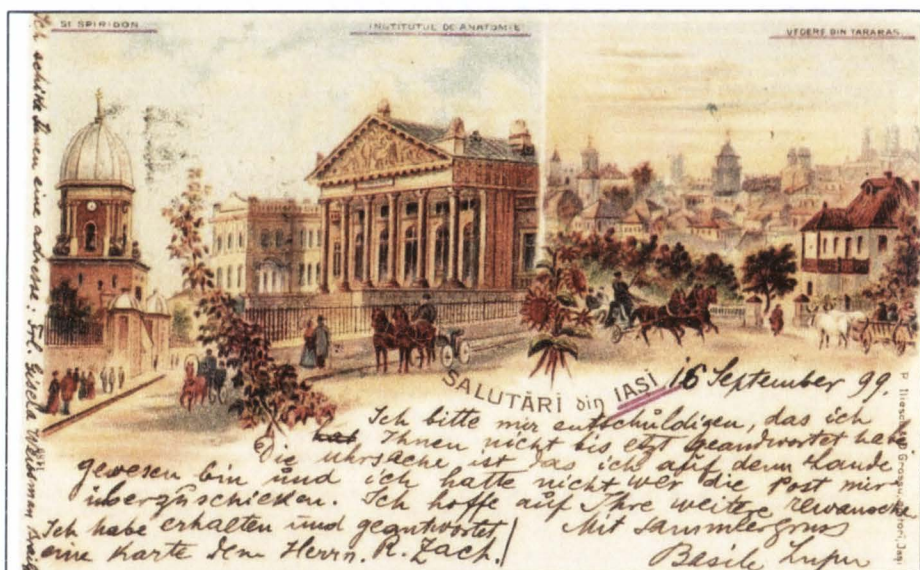 SF. SPIRIDON
INSTITUTUL DE ANATOMIE
VEDERE DIN TARARAS
SALUTĂRI din IAȘI
16 September 99.
Ich bitte mir entschuldigen, das ich
hat Ihnen nicht bis etzt geandwortet habe
Die uhrsache ist das ich auf dem Lande
gewesen bin und ich hatte nicht wer die Post mir
überzuschicken. Ich hoffe auf Ihre weitere
Mit Sammlergruss
Basile Lupu
Ich habe erhalten und geantwortet
eine Karte dem Herrn. R. Zach.
Ich schike Ihnen eine adresse: Frl. Gisela